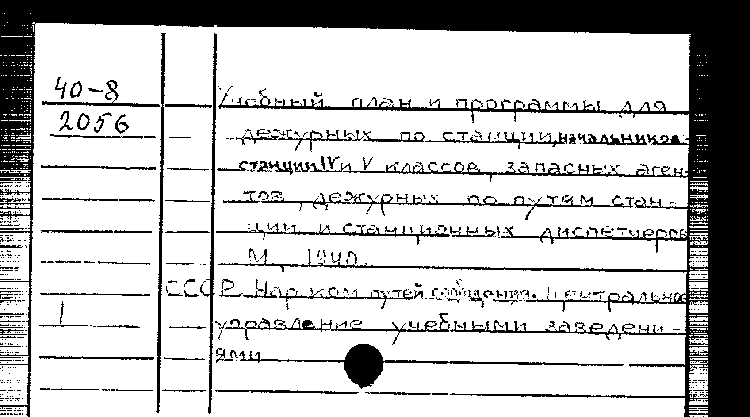 40-8
2056
Учебный план и программы для
дежурных по станции, начальников
станции IV и V классов, запасных аген-
тов, дежурных по путям стан-
ции и станционных диспетчеров
М., 1940.
СССР. Нарком путей сообщения. Центральное
управление учебными заведени-
ями
1